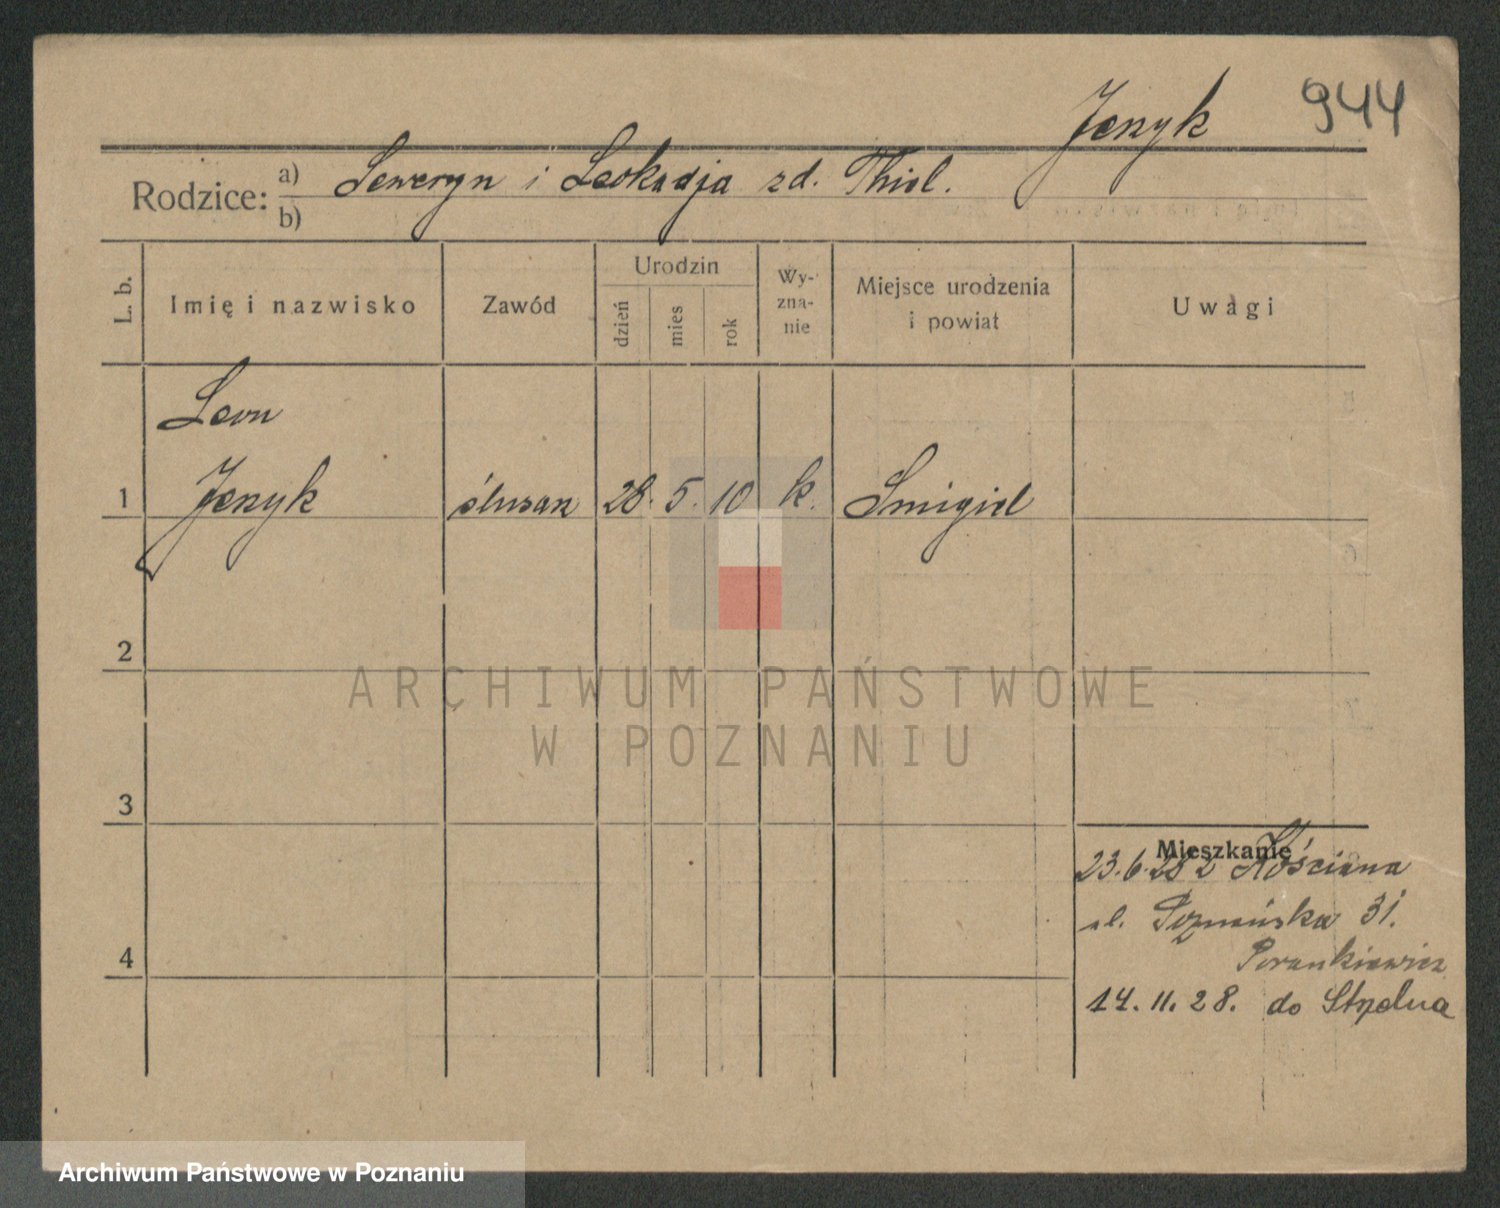 Jezyk 944
Rodzice: a) Seweryn i Leokadja zd. Thiel.
b)
L. b. Imię i nazwisko Zawód Urodzin dzień mies rok Wyzna-nie Miejsce urodzenia i powiat Uwagi
Leon
1 Jezyk ślusarz 28. 5. 10 k. Śmigiel
2
ARCHIWUM PAŃSTWOWE
W POZNANIU
3
Mieszkanie
23.6.28 z Kościana
ul. Poznańska 31.
4
14.11.28. do Strzelna
Archiwum Państwowe w Poznaniu